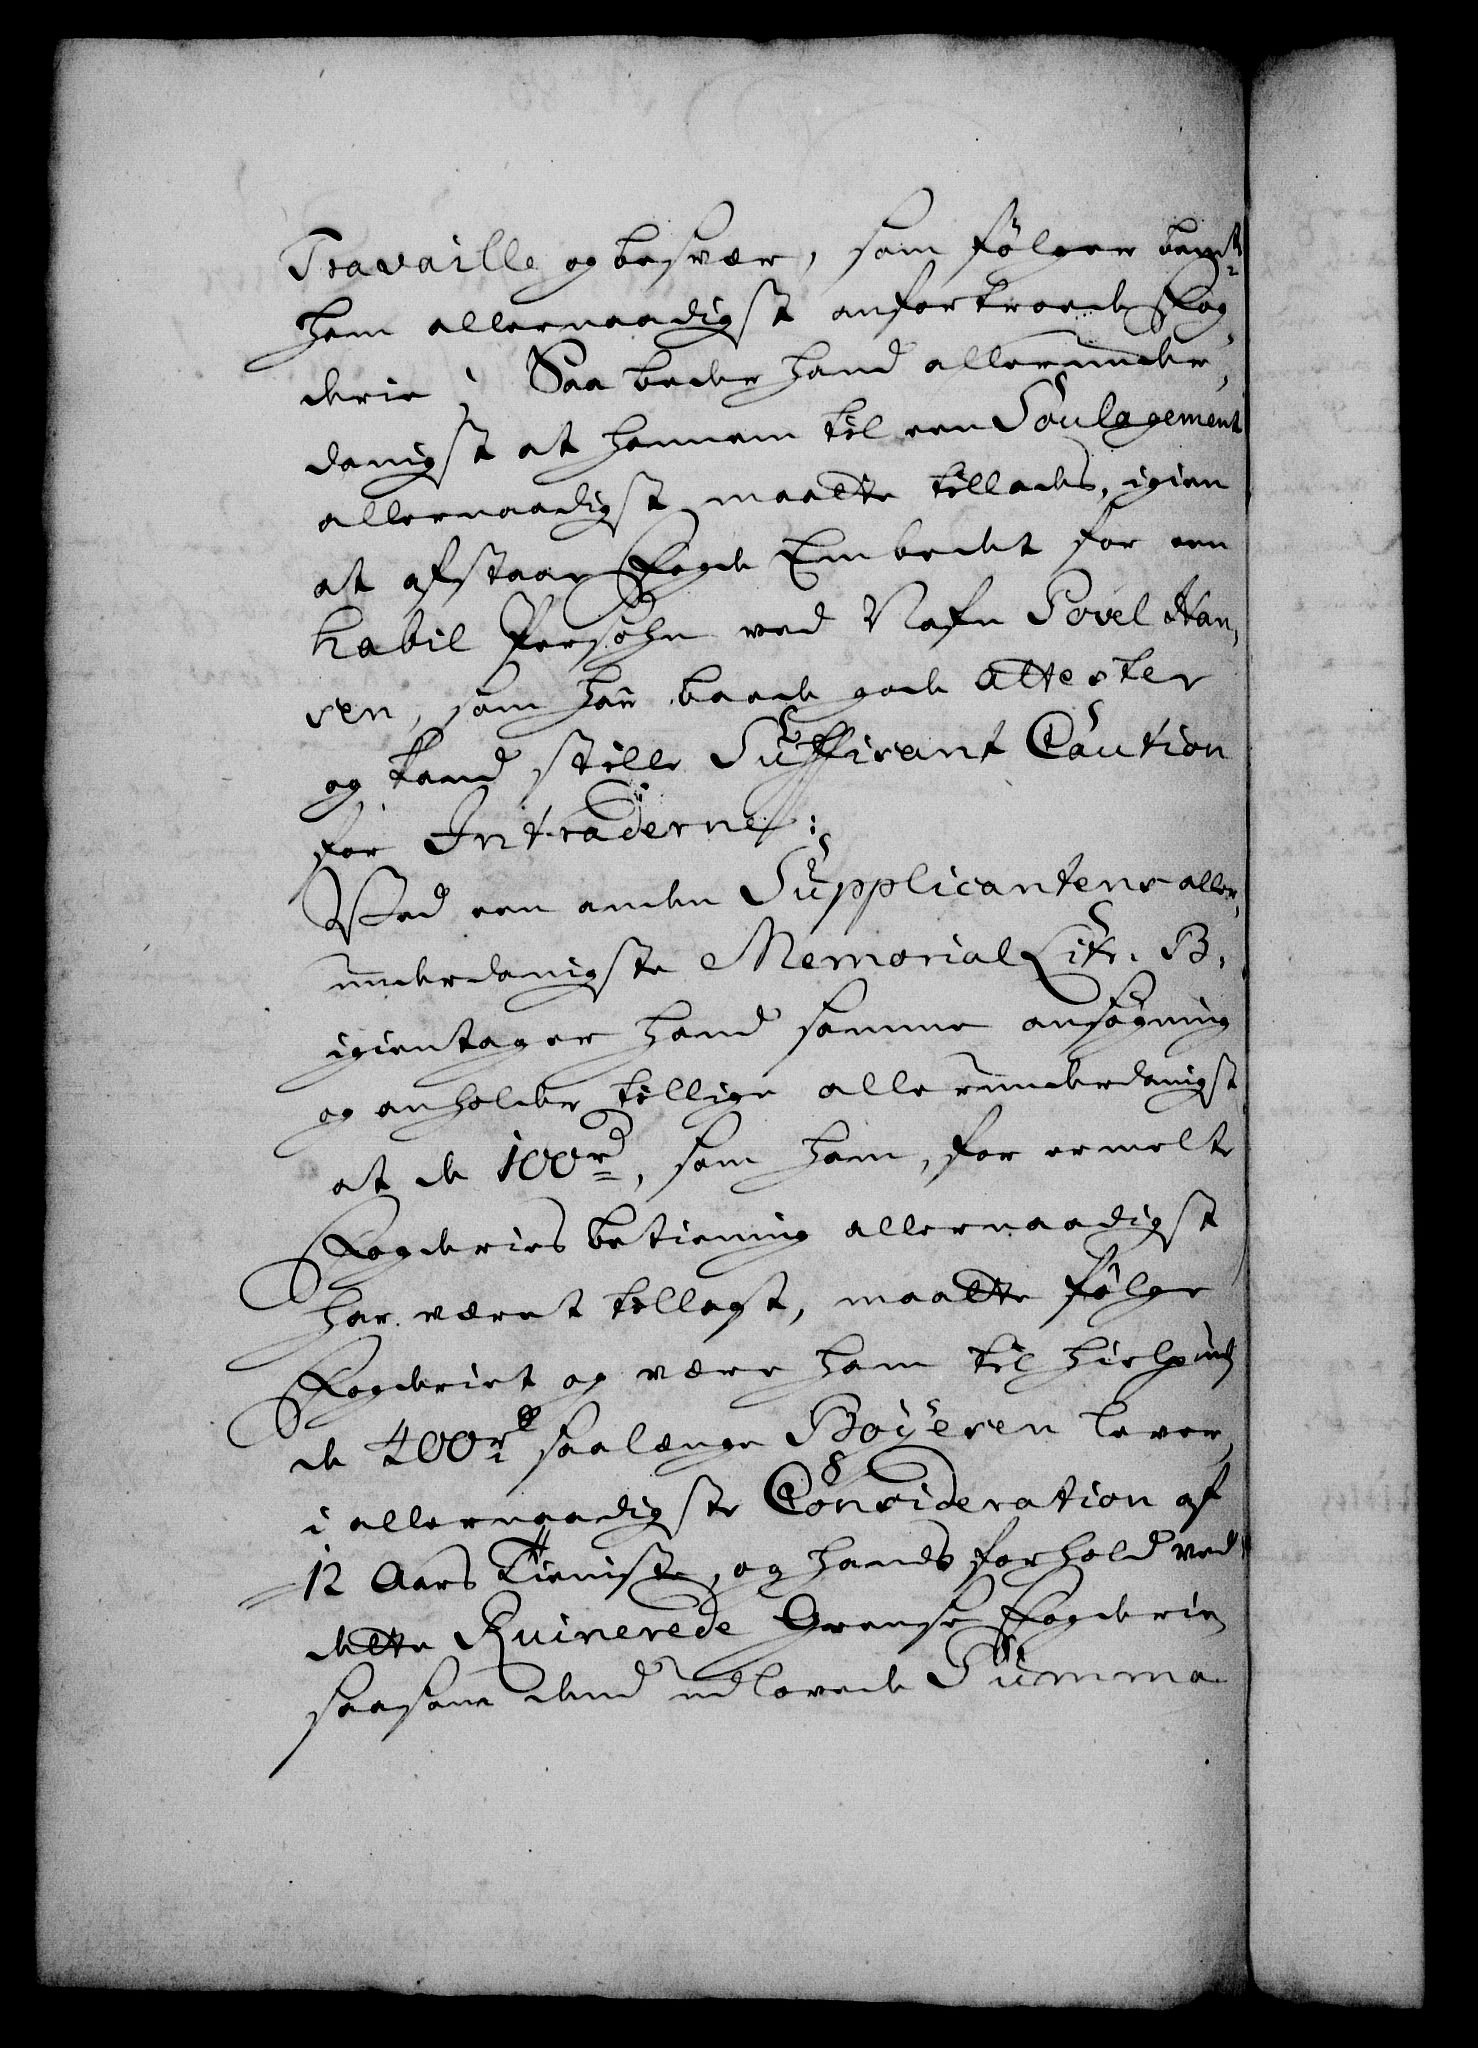 Travaille og besvær, som følger bemte
ham allernaadigst anfortroede Fog-
derie; Saa beder hand allerunder-
danigst at hannem til een Soulagement
allernaadigst maatte tillades, igien
at afstaae Fogde Embedet for een
habil Persohn ved Nafn Povel Han-
sen, som haŭ baade gode Attester
og kand stille Suffisant Caution
for Intraderne:
Ved een anden Supplicantens aller-
underdanigste Memorial Litr. B.
igientager hand samme ansøgning
og anholder tillige allerunderdanigst
at de 100 rd, som ham, for ermelte
Fogderies betiening allernaadigst
har været tillagt, maatte følge
Fogderiet og være ham til hielp
de 400 rd saalænge Bøyesen lever,
i allernaadigste Consideration af
12 Aars Tieniste, og hands forhold ved
dette Ruinerede Grense Fogderie
saasom dend udlovede Summa